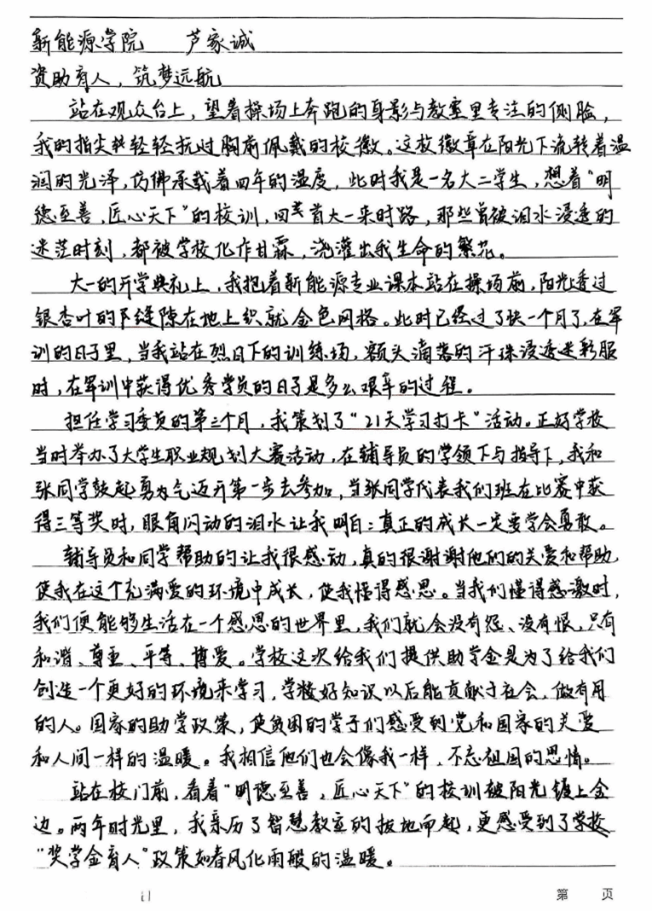 新能源学院 芦家诚
资助育人，筑梦远航
站在观众台上，望着操场上奔跑的身影与教室里专注的侧脸，
我的指尖轻轻抚过胸前佩戴的校徽。这枚徽章在阳光下流转着温
润的光泽，仿佛承载着四年的温度，此时我是一名大二学生，想着“明
德至善，匠心天下”的校训，回首大一来时路，那些曾被泪水浸透的
迷茫时刻，都被学校化作甘霖，浇灌出我生命的繁花。
大一的开学典礼上，我抱着新能源专业课本站在操场前，阳光透过
银杏叶的缝隙在地上织就金色网格。此时已经过了快一个月了，在军
训的日子里，当我站在烈日下的训练场，额头滴落的汗珠浸透迷彩服
时，在军训中获得优秀学员的日子是多么艰辛的过程。
担任学习委员的第三个月，我策划了“21天学习打卡”活动。正好学校
当时举办了大学生职业规划大赛活动，在辅导员的带领下与指导下，我和
张同学鼓起勇气迈开第一步去参加，当张同学代表我们班在比赛中获
得三等奖时，眼角闪动的泪水让我明白：真正的成长一定要学会勇敢。
辅导员和同学帮助的让我很感动，真的很谢谢他们的关爱和帮助，
使我在这个充满爱的环境中成长，使我懂得感恩。当我们懂得感激时，
我们便能够生活在一个感恩的世界里，我们就会没有怨、没有恨，只有
和谐、尊重、平等、博爱。学校这次给我们提供助学金是为了给我们
创造一个更好的环境来学习，学好知识以后能贡献于社会，做有用
的人。国家的助学政策，使贫困的学子们感受到党和国家的关爱
和人间一样的温暖。我相信他们也会像我一样，不忘祖国的恩情。
站在校门前，看着“明德至善，匠心天下”的校训被阳光镀上金
边。两年时光里，我亲历了智慧教室的拔地而起，更感受到了学校
“奖学金育人”政策如春风化雨般的温暖。
第 页